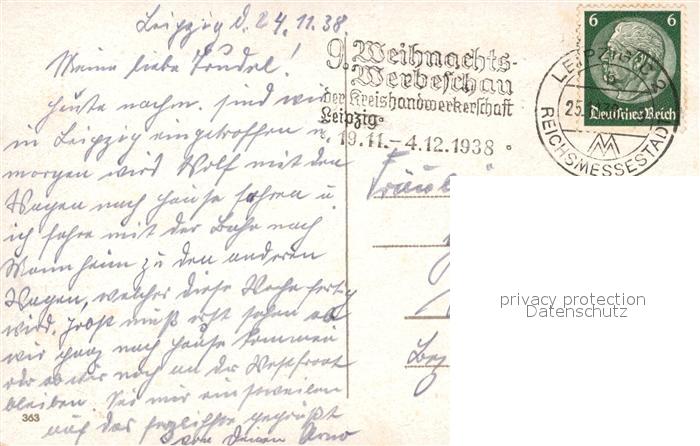 Leipzig d. 24.11.38
Meine liebe Trudel!
Heute nachm. sind wir
in Leipzig eingetroffen u.
morgen wird Wolf mit dem
Wagen nach Hause fahren u.
ich fahre mit der Bahn nach
Mannheim zu den anderen
Wagen, welcher diese Woche fertig
wird. Jetzt muß erst sehen ob
wir ganz nach Hause kommen
oder ob wir noch an der Westfront
bleiben. Sei mir einstweilen
auf das herzlichste gegrüßt
von Deinem Arno
363
9. Weihnachts-
Werbeschau
der Kreishandwerkerschaft
Leipzig
19.11.–4.12.1938
LEIPZIG C 2
25.
REICHSMESSESTADT
6 6
Deutsches Reich
Fräul
privacy protection
Datenschutz